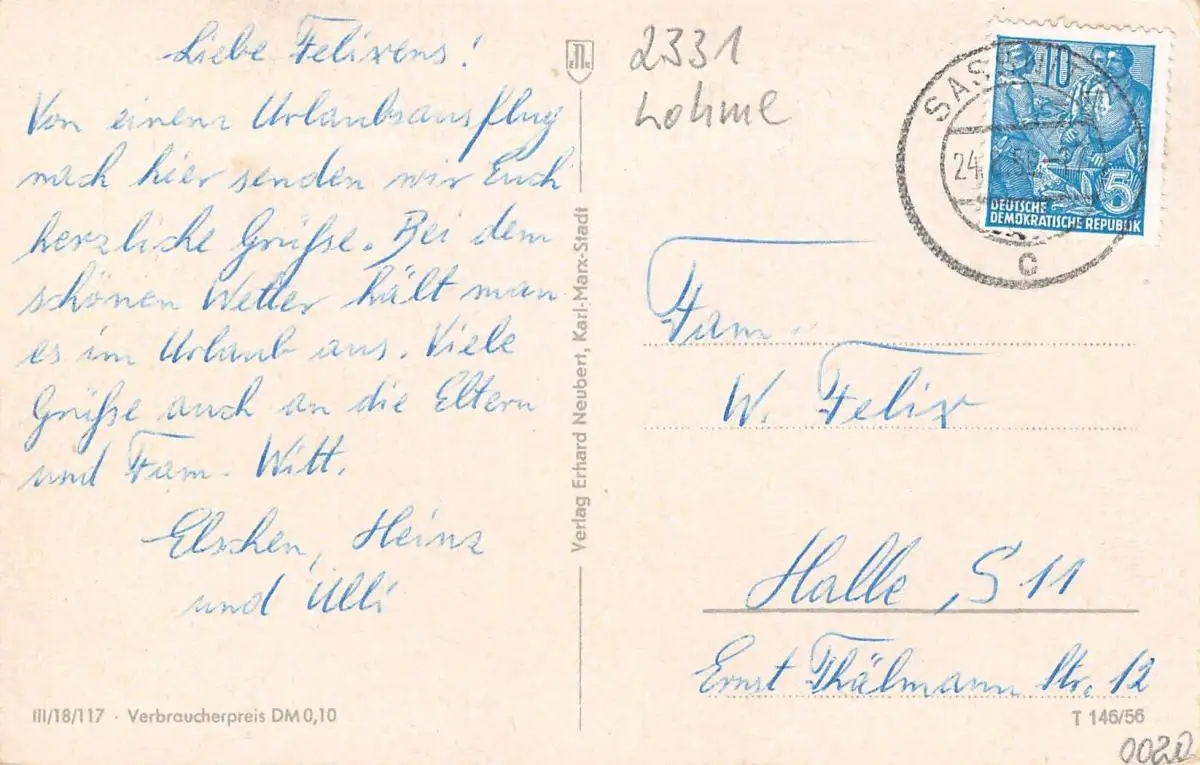 Liebe Felixens!
Von einem Urlaubsausflug
nach hier senden wir Euch
herzliche Grüße. Bei dem
schönen Wetter hält man
es im Urlaub aus. Viele
Grüße auch an die Eltern
und Fam. Witt.
Elschen, Heinz
und Ulli
III/18/117 · Verbraucherpreis DM 0,10
Verlag Erhard Neubert, Karl-Marx-Stadt
2331
Lohme
SASSNITZ
24.
c
10
5
DEUTSCHE
DEMOKRATISCHE REPUBLIK
Fam.
W. Felix
Halle, S 11
Ernst Thälmann Str. 12
T 146/56
0020